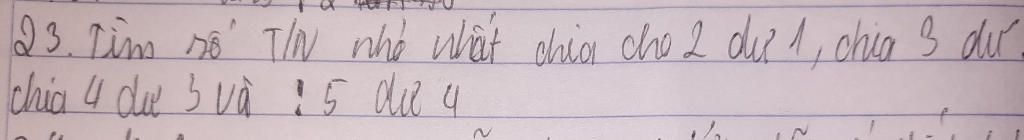 23. Tìm số T/N nhỏ nhất chia cho 2 dư 1, chia 3 dư
chia 4 dư 3 và : 5 dư 4